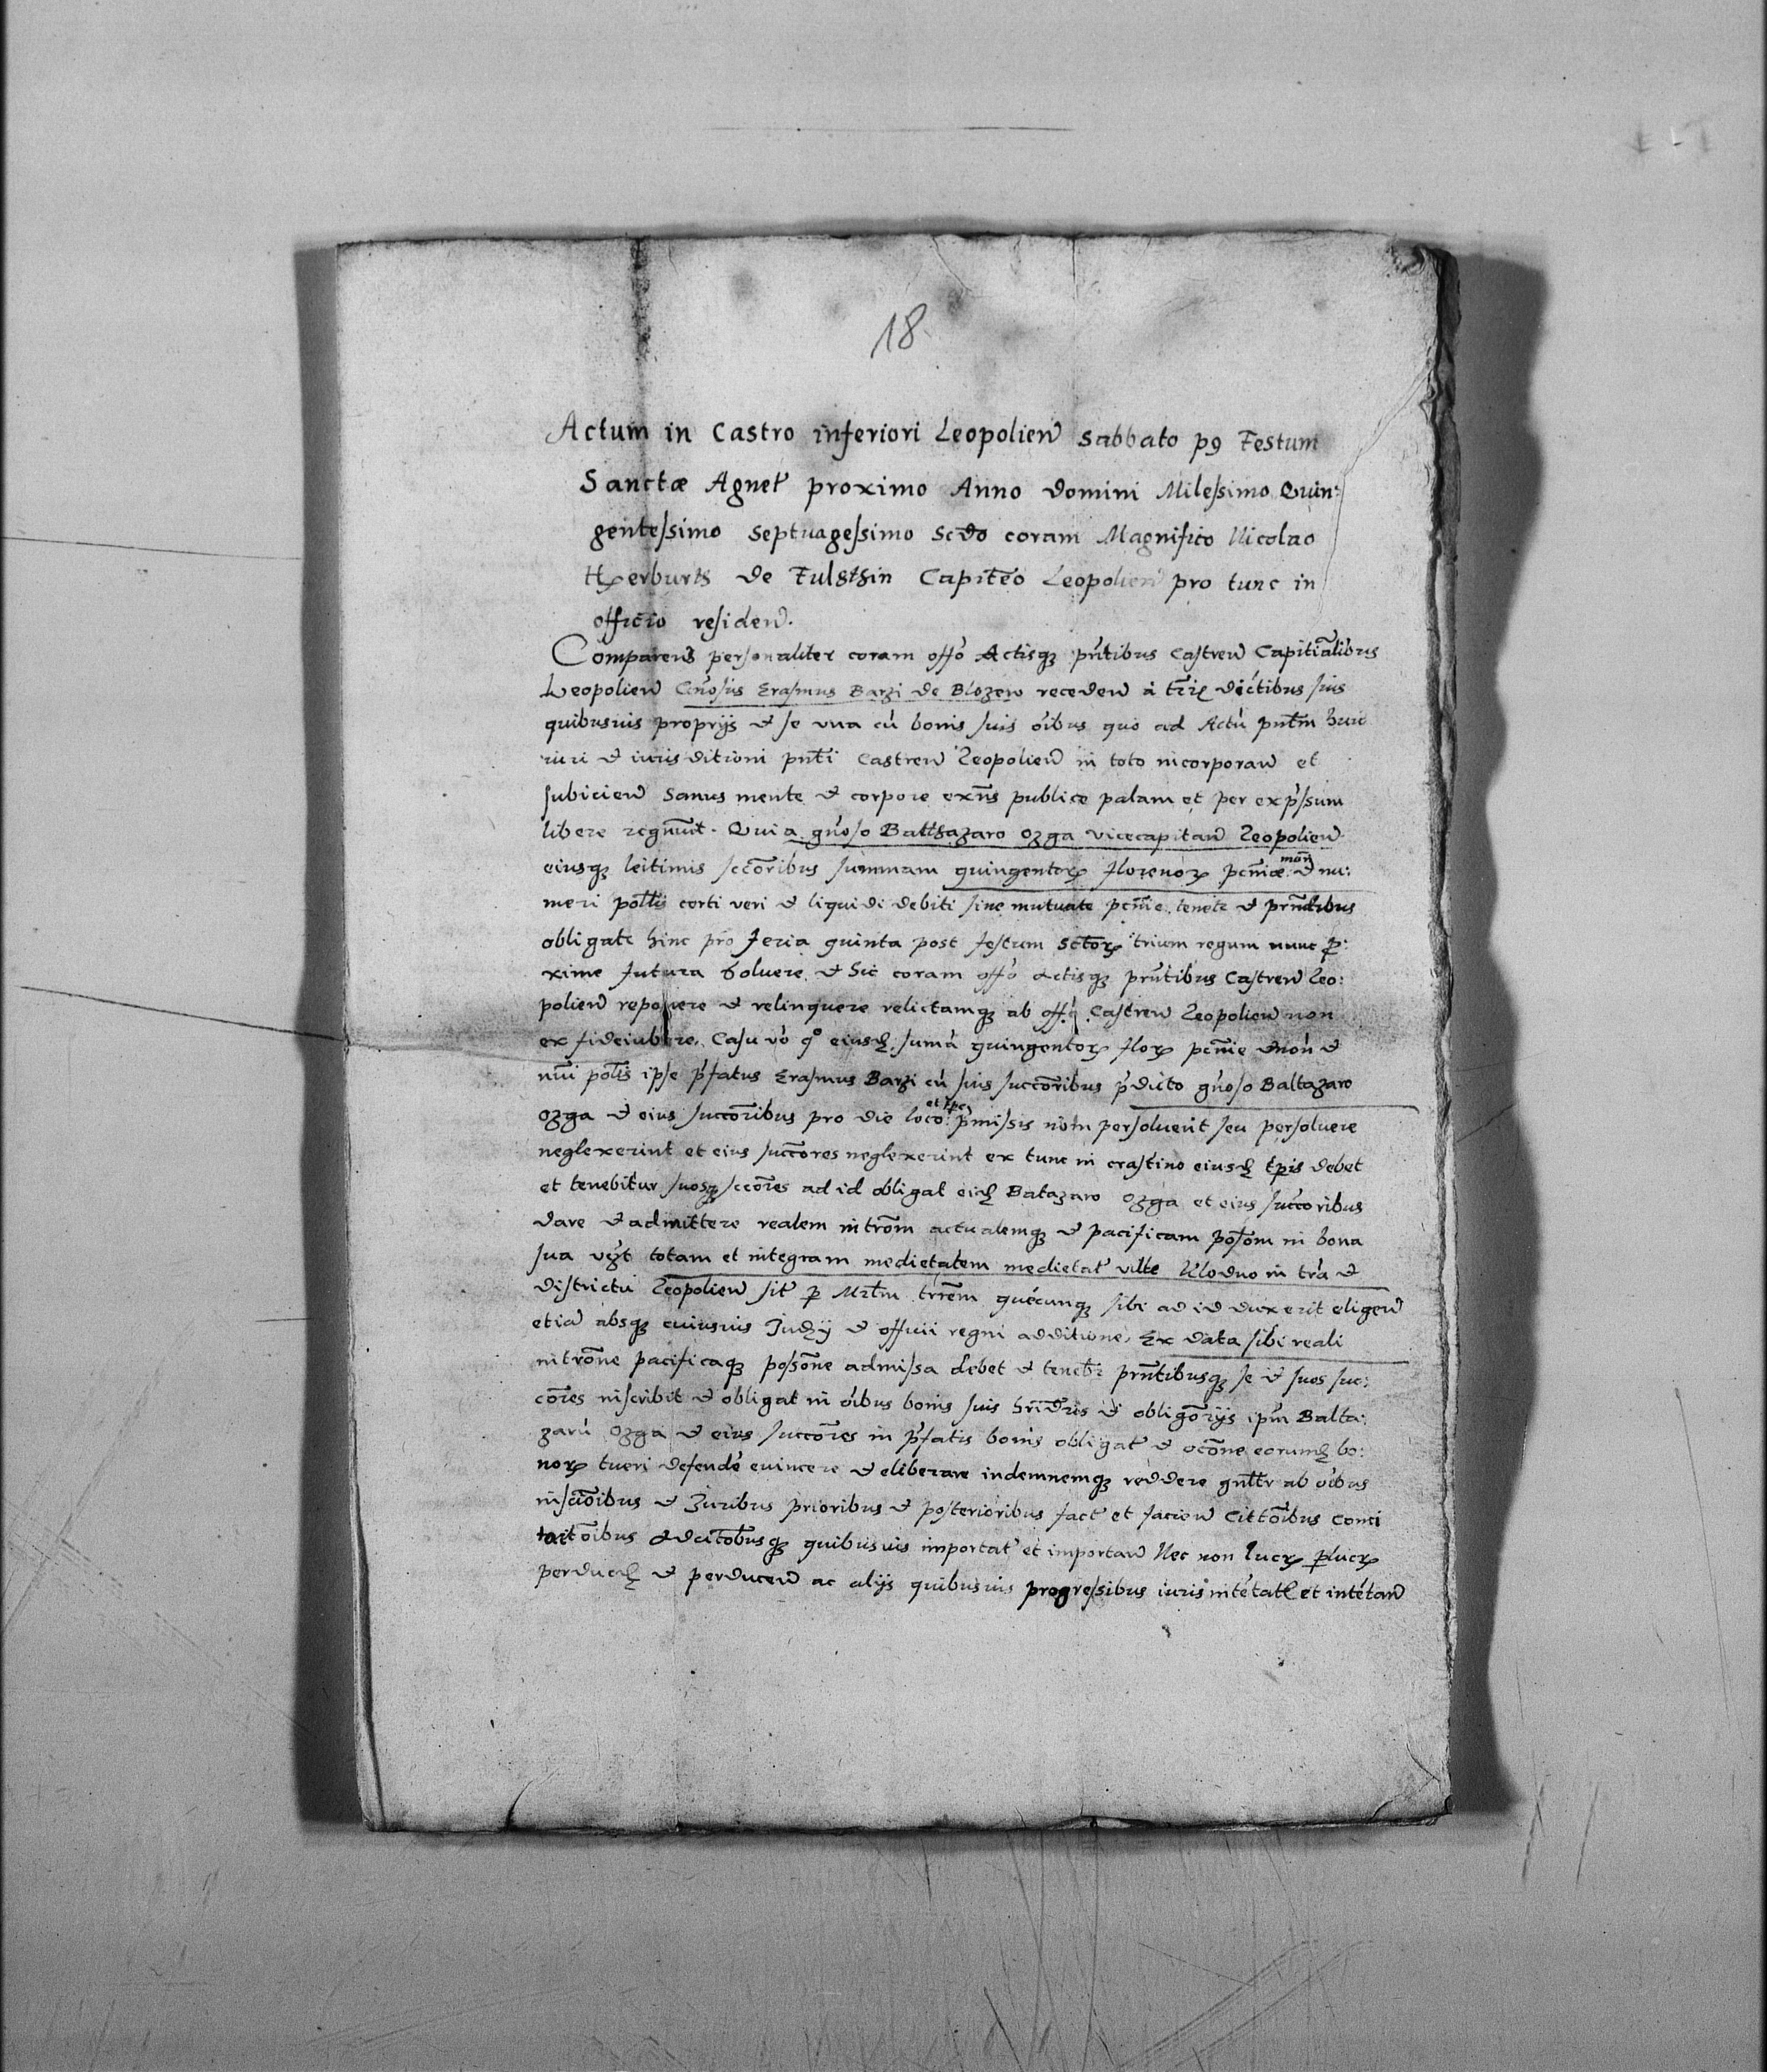 18
Actum in Castro inferiori Leopolien̄ sabbato pꝰ Festum
Sanctæ Agnet̄ proximo Anno Domini Milessimo Quin:
gentessimo septuagessimo Scdo coram Magnifico Nicolao
Herburth de Fulsthin Capitēo Leopolien̄ pro tunc in
officio residen̄.
Comparens personaliter coram offo Actisqȝ pn̄tibus Castren̄ Capitialibus
Leopolien̄ Gn̄osus Erasmus Barzi de Blozew receden̄ à dictibus suis
quibusuis proprijs et se vna cū bonis suis oībus quo ad Actū pn̄tem huic
iuri et iurisditioni pn̄ti Castren̄ Leopolien̄ in toto incorporan̄ et
subicien̄ Sanus mente et corpore exn̄s publice palam et per exp̄ssum
libere recgnuit. Quia gn̄oso Balthazaro Ozga vicecapitan̄ Leopolien̄
eiusqȝ leitimis sccōribus summam quingentoꝝ florenoꝝ pcn̄iæ mon̄ et nu:
meri pol̄lis certi veri et liquidi debiti siue mutuate pcn̄ie tenetr et prn̄tibus
obligatr hinc pro feria quinta post festum Sctoꝝ trium regum nunc ꝓ:
xime futura soluere et Sic coram offo actisqȝ prn̄tibus Castren̄ Leo:
polien̄ reponere et relinquere relictamqȝ ab offo Castren̄ Leopolien̄ non
ex fideiubere. Casu vō qo eiusd̄ sumā quingentoꝝ floꝝ pcn̄ie mōn et
nūi pol̄is ipse p̄fatus Erasmus Barzi cū suis succōribus p̄dicto gn̄oso Baltazaro
Ozga et eius succōribus pro die loco et tpe p̄missis non persoluerit seu persoluere
neglexerint et eius succōres neglexerint ex tunc in crastino eiusd̄ tp̄is debet
et tenebitur suosqȝ sccōres ad id obligat eid̄ Batazaro Ozga et eius succoribus
dare et admittere realem intrōm actualemqȝ et pacificam posōm in bona
sua vȝt totam et integram medietatem medietat̄ ville Wloduo in tr̄a et
districtu Leopolien̄ sit̄ ꝑ Mrt̄m trr̄em quecunqȝ sibi ad id duxerit eligen̄
etiā absqȝ cuiusuis Judȳ et officii regni additione. Ex data sibi reali
intrōne pacificaqȝ possōne admissa debet et tenebr prn̄tibusqȝ se et suos suc:
cōres inscribit et obligat in oībus bonis suis hrīdrīs et obligōrijs ipm̄ Balta:
zarū Ozga et eius succōres in p̄fatis bonis obligat̄ et occōne eorumd̄ bo:
noꝝ tueri defendē euincere et eliberare indemnemqȝ reddere gnl̄tr ab oībus
inscōibus et Juribus prioribus et posterioribus fact̄ et facien̄ Cittōibus Conci
tactōibus quibusuis importat̄ et importan̄ Nec non lucꝝ ꝑlucꝝ
perduct̄ et perducen̄ ac alijs quibusuis progressibus iuris intētat̄ et intētan̄